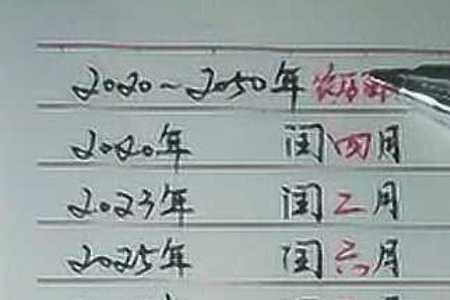 2020～2050年农历
2020年 闰四月
2023年 闰二月
2025年 闰六月